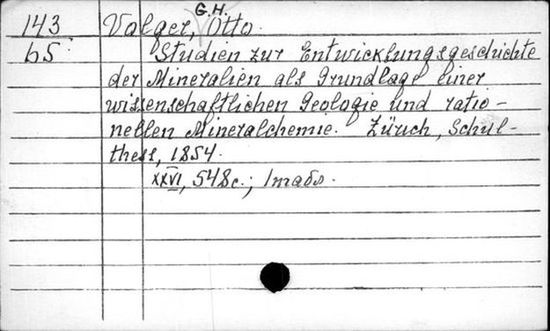 G.H.
143 Volger, Otto.
65 Studien zur Entwicklungsgeschichte
der Mineralien als Grundlage einer
wissenschaftlichen Geologie und ratio-
nellen Mineralchemie. Zürich, Schul-
thess, 1854.
XXVI, 548 с.; 1 табл.